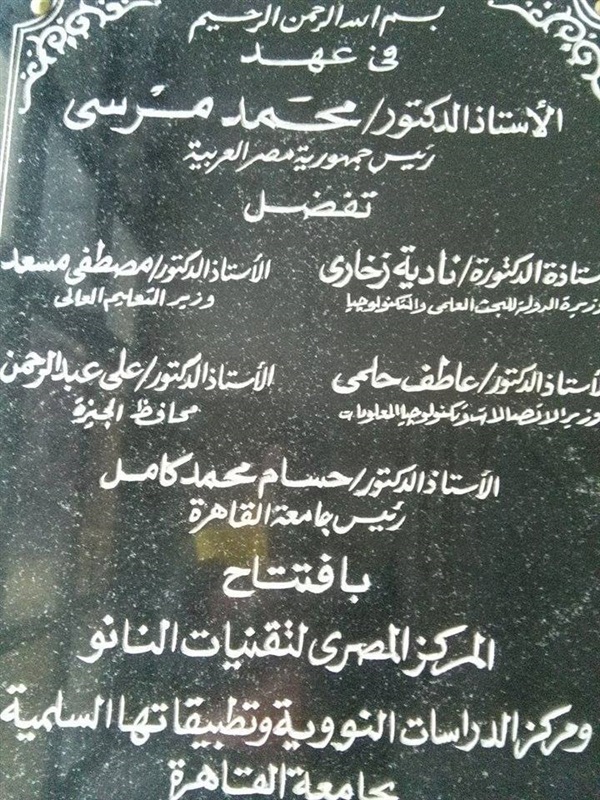 بسم الله الرحمن الرحيم
فى عهد
الأستاذ الدكتور/ محمد مرسى
رئيس جمهورية مصر العربية
تفضل
ستاذة الدكتورة/ نادية زخارى
وزيرة الدولة للبحث العلمى والتكنولوجيا
الأستاذ الدكتور/ مصطفى مسعد
وزير التعليم العالى
الأستاذ الدكتور/ عاطف حلمى
وزير الاتصالات وتكنولوجيا المعلومات
الأستاذ الدكتور/ على عبد الرحمن
محافظ الجيزة
الأستاذ الدكتور/ حسام محمد كامل
رئيس جامعة القاهرة
بافتتاح
المركز المصرى لتقنيات النانو
ومركز الدراسات النووية وتطبيقاتها السلمية
بجامعة القاهرة